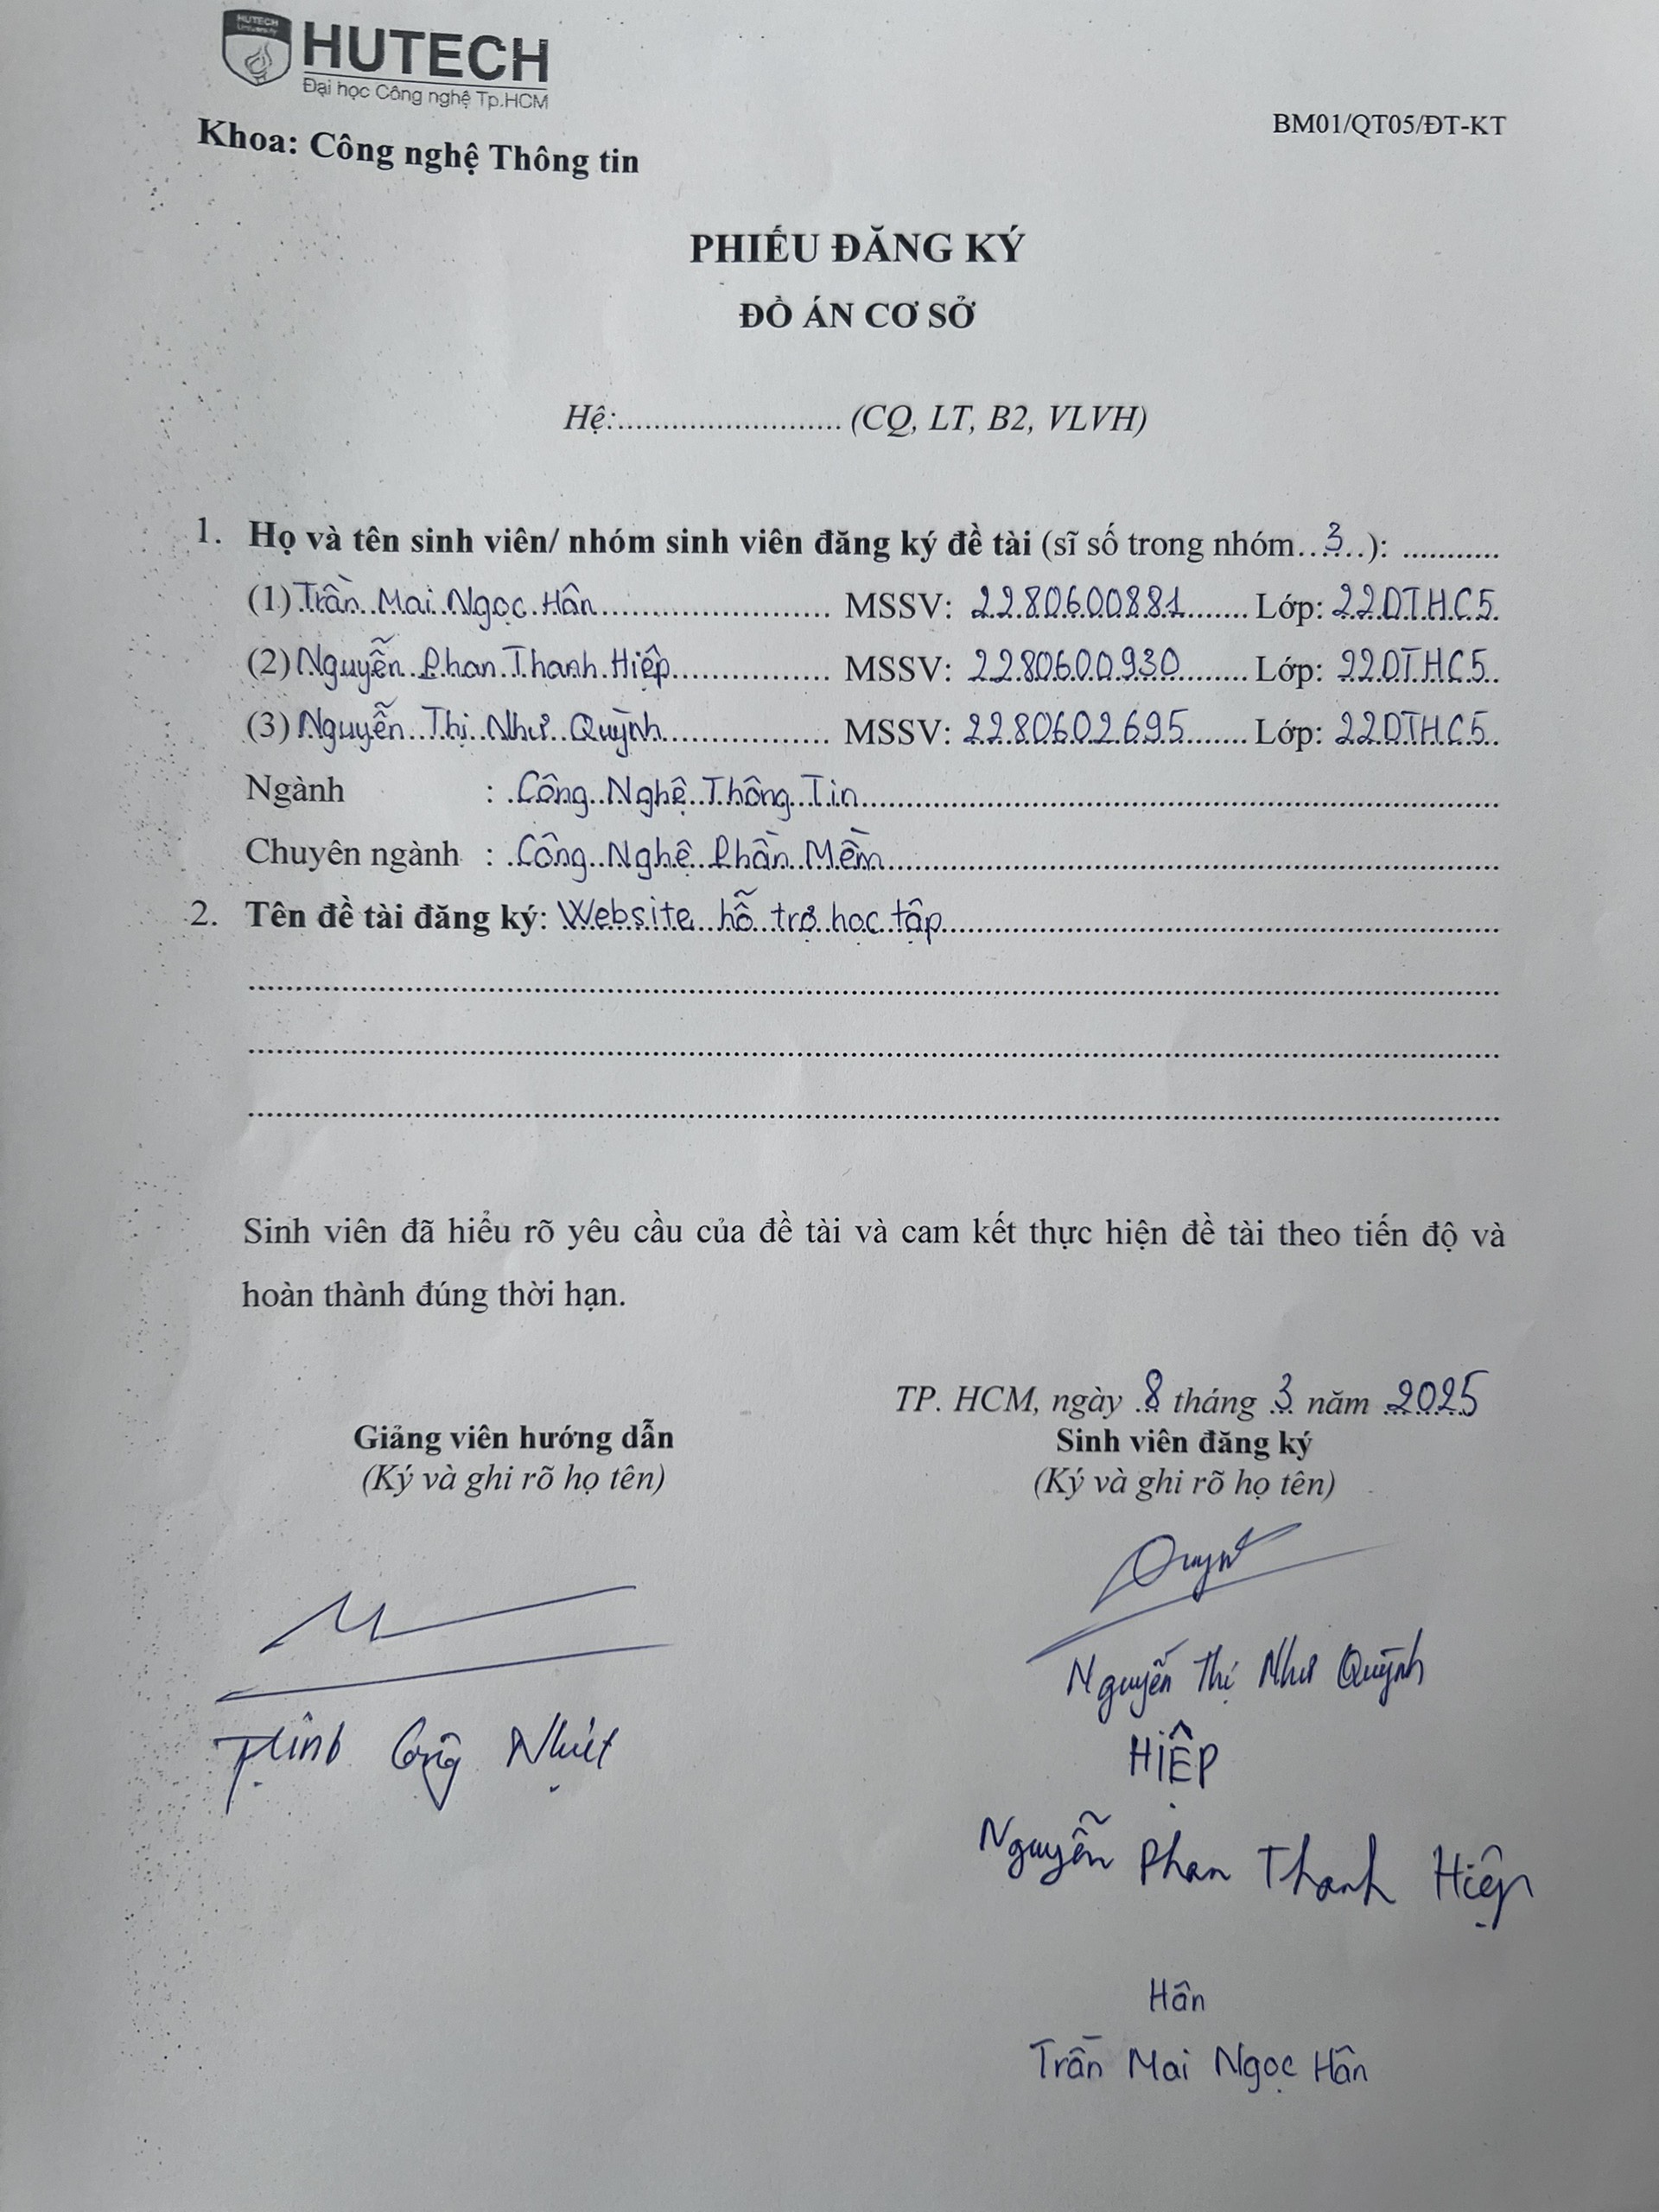 HUTECH
University
HUTECH
Đại học Công nghệ Tp.HCM
Khoa: Công nghệ Thông tin
BM01/QT05/ĐT-KT
PHIẾU ĐĂNG KÝ
ĐỒ ÁN CƠ SỞ
Hệ:......................... (CQ, LT, B2, VLVH)
1. Họ và tên sinh viên/ nhóm sinh viên đăng ký đề tài (sĩ số trong nhóm...3...): ...........
(1) Trần Mai Ngọc Hân MSSV: 2280600881 Lớp: 22DTHC5
(2) Nguyễn Phan Thanh Hiệp MSSV: 2280600930 Lớp: 22DTHC5
(3) Nguyễn Thị Như Quỳnh MSSV: 2280602695 Lớp: 22DTHC5
Ngành : Công Nghệ Thông Tin
Chuyên ngành : Công Nghệ Phần Mềm
2. Tên đề tài đăng ký: Website hỗ trợ học tập
Sinh viên đã hiểu rõ yêu cầu của đề tài và cam kết thực hiện đề tài theo tiến độ và
hoàn thành đúng thời hạn.
TP. HCM, ngày 8 tháng 3 năm 2025
Giảng viên hướng dẫn
(Ký và ghi rõ họ tên)
Sinh viên đăng ký
(Ký và ghi rõ họ tên)
Quỳnh
Nguyễn Thị Như Quỳnh
Công
HIỆP
Nguyễn Phan Thanh Hiệp
Hân
Trần Mai Ngọc Hân